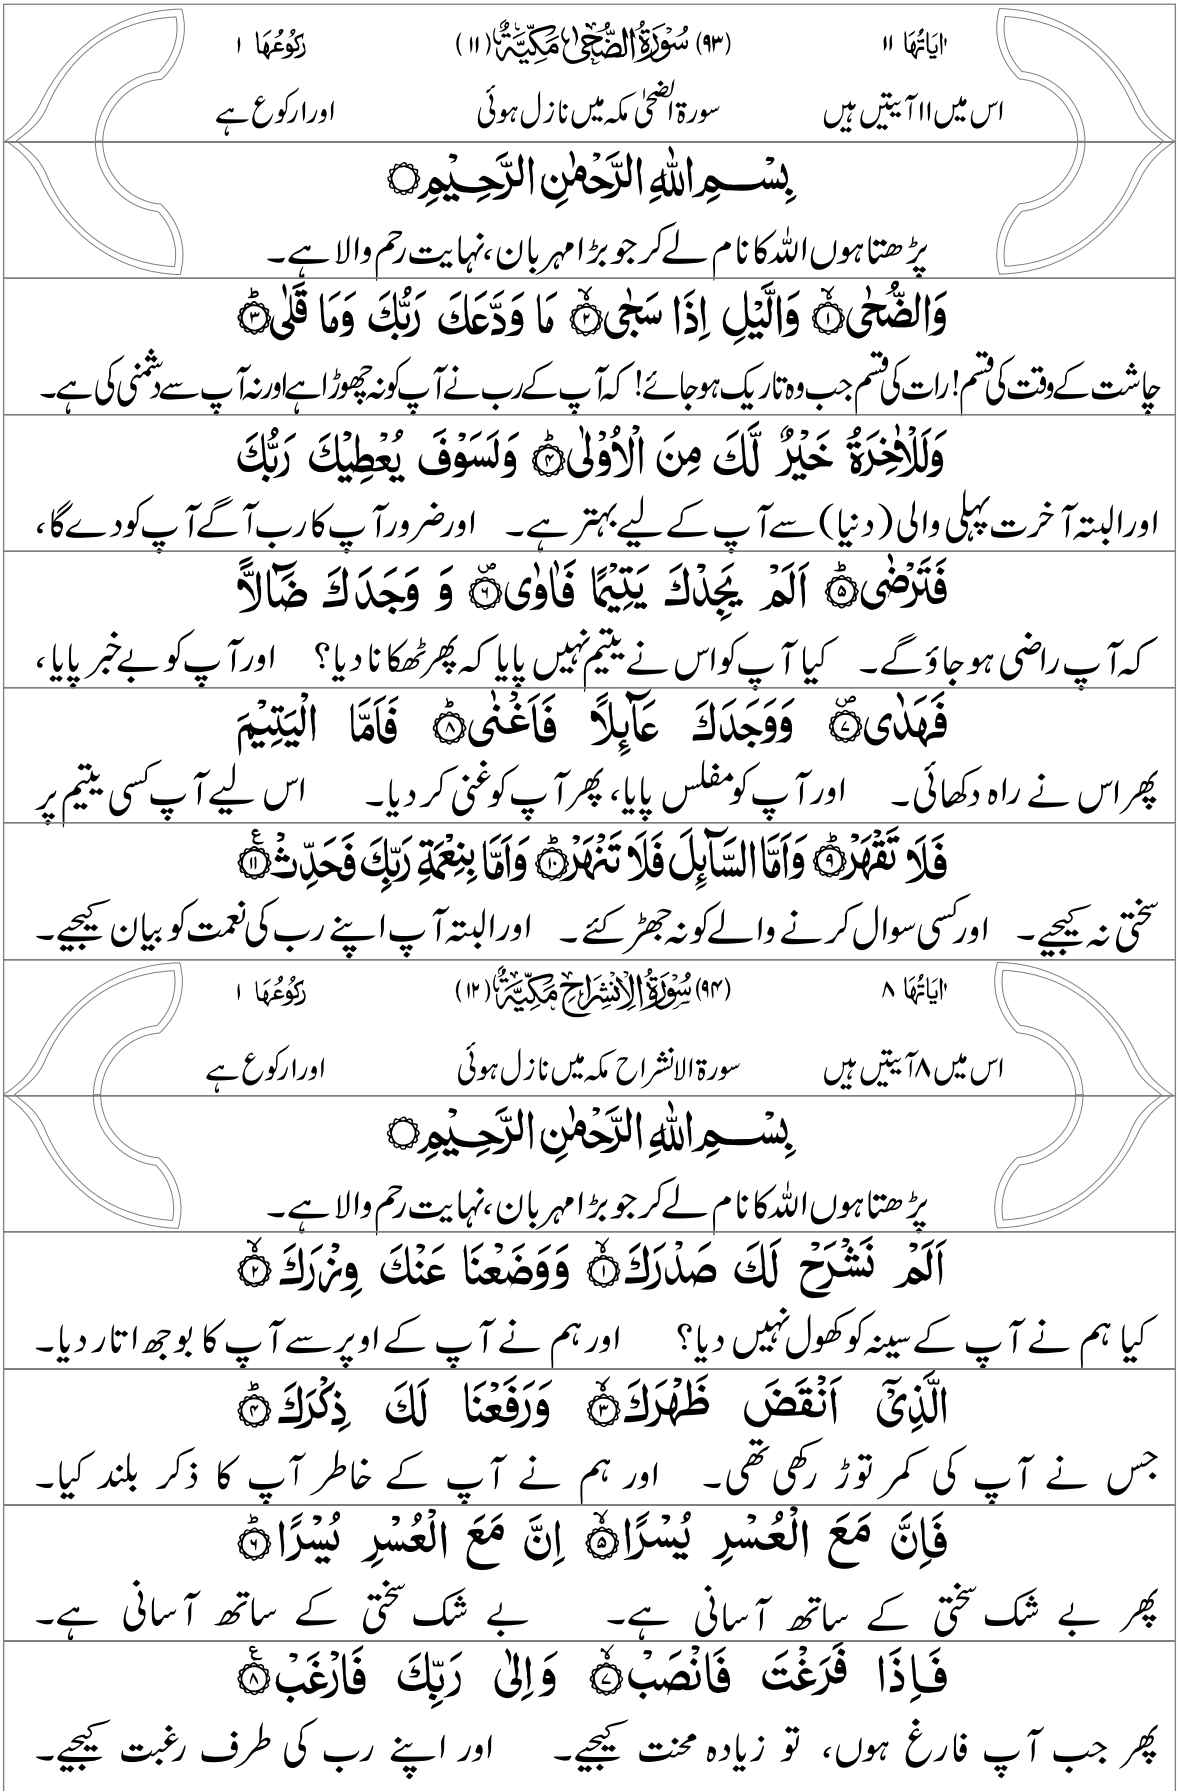 اٰيَاتُهَا ١١ (٩٣) سُوْرَةُ الضُّحٰى مَكِّيَّةٌ (١١) رُكُوْعُهَا ١
اس میں ۱۱ آیتیں ہیں سورۃ الضحٰی مکہ میں نازل ہوئی اور ۱ رکوع ہے
بِسْمِ اللهِ الرَّحْمٰنِ الرَّحِيْمِ
پڑھتا ہوں اللہ کا نام لے کر جو بڑا مہربان، نہایت رحم والا ہے۔
وَالضُّحٰى ۙ﴿١﴾ وَالَّيْلِ اِذَا سَجٰى ۙ﴿٢﴾ مَا وَدَّعَكَ رَبُّكَ وَمَا قَلٰى ؕ﴿٣﴾
چاشت کے وقت کی قسم! رات کی قسم جب وہ تاریک ہو جائے! کہ آپ کے رب نے آپ کو نہ چھوڑا ہے اور نہ آپ سے دشمنی کی ہے۔
وَلَلْاٰخِرَةُ خَيْرٌ لَّكَ مِنَ الْاُوْلٰى ؕ﴿٤﴾ وَلَسَوْفَ يُعْطِيْكَ رَبُّكَ
اور البتہ آخرت پہلی والی (دنیا) سے آپ کے لیے بہتر ہے۔ اور ضرور آپ کا رب آگے آپ کو دے گا،
فَتَرْضٰى ؕ﴿٥﴾ اَلَمْ يَجِدْكَ يَتِيْمًا فَاٰوٰى ۪﴿٦﴾ وَ وَجَدَكَ ضَآلًّا
کہ آپ راضی ہو جاؤ گے۔ کیا آپ کو اس نے یتیم نہیں پایا کہ پھر ٹھکانا دیا؟ اور آپ کو بے خبر پایا،
فَهَدٰى ۪﴿٧﴾ وَوَجَدَكَ عَآئِلًا فَاَغْنٰى ؕ﴿٨﴾ فَاَمَّا الْيَتِيْمَ
پھر اس نے راہ دکھائی۔ اور آپ کو مفلس پایا، پھر آپ کو غنی کر دیا۔ اس لیے آپ کسی یتیم پر
فَلَا تَقْهَرْ ؕ﴿٩﴾ وَاَمَّا السَّآئِلَ فَلَا تَنْهَرْ ؕ﴿١٠﴾ وَاَمَّا بِنِعْمَةِ رَبِّكَ فَحَدِّثْ ﴿١١﴾
سختی نہ کیجیے۔ اور کسی سوال کرنے والے کو نہ جھڑکئے۔ اور البتہ آپ اپنے رب کی نعمت کو بیان کیجیے۔
اٰيَاتُهَا ٨ (٩٤) سُوْرَةُ الْاِنْشِرَاحِ مَكِّيَّةٌ (١٢) رُكُوْعُهَا ١
اس میں ۸ آیتیں ہیں سورۃ الانشراح مکہ میں نازل ہوئی اور ۱ رکوع ہے
بِسْمِ اللهِ الرَّحْمٰنِ الرَّحِيْمِ
پڑھتا ہوں اللہ کا نام لے کر جو بڑا مہربان، نہایت رحم والا ہے۔
اَلَمْ نَشْرَحْ لَكَ صَدْرَكَ ۙ﴿١﴾ وَوَضَعْنَا عَنْكَ وِزْرَكَ ۙ﴿٢﴾
کیا ہم نے آپ کے سینہ کو کھول نہیں دیا؟ اور ہم نے آپ کے اوپر سے آپ کا بوجھ اتار دیا۔
الَّذِيْٓ اَنْقَضَ ظَهْرَكَ ۙ﴿٣﴾ وَرَفَعْنَا لَكَ ذِكْرَكَ ؕ﴿٤﴾
جس نے آپ کی کمر توڑ رکھی تھی۔ اور ہم نے آپ کے خاطر آپ کا ذکر بلند کیا۔
فَاِنَّ مَعَ الْعُسْرِ يُسْرًا ۙ﴿٥﴾ اِنَّ مَعَ الْعُسْرِ يُسْرًا ؕ﴿٦﴾
پھر بے شک سختی کے ساتھ آسانی ہے۔ بے شک سختی کے ساتھ آسانی ہے۔
فَاِذَا فَرَغْتَ فَانْصَبْ ۙ﴿٧﴾ وَاِلٰى رَبِّكَ فَارْغَبْ ﴿٨﴾
پھر جب آپ فارغ ہوں، تو زیادہ محنت کیجیے۔ اور اپنے رب کی طرف رغبت کیجیے۔